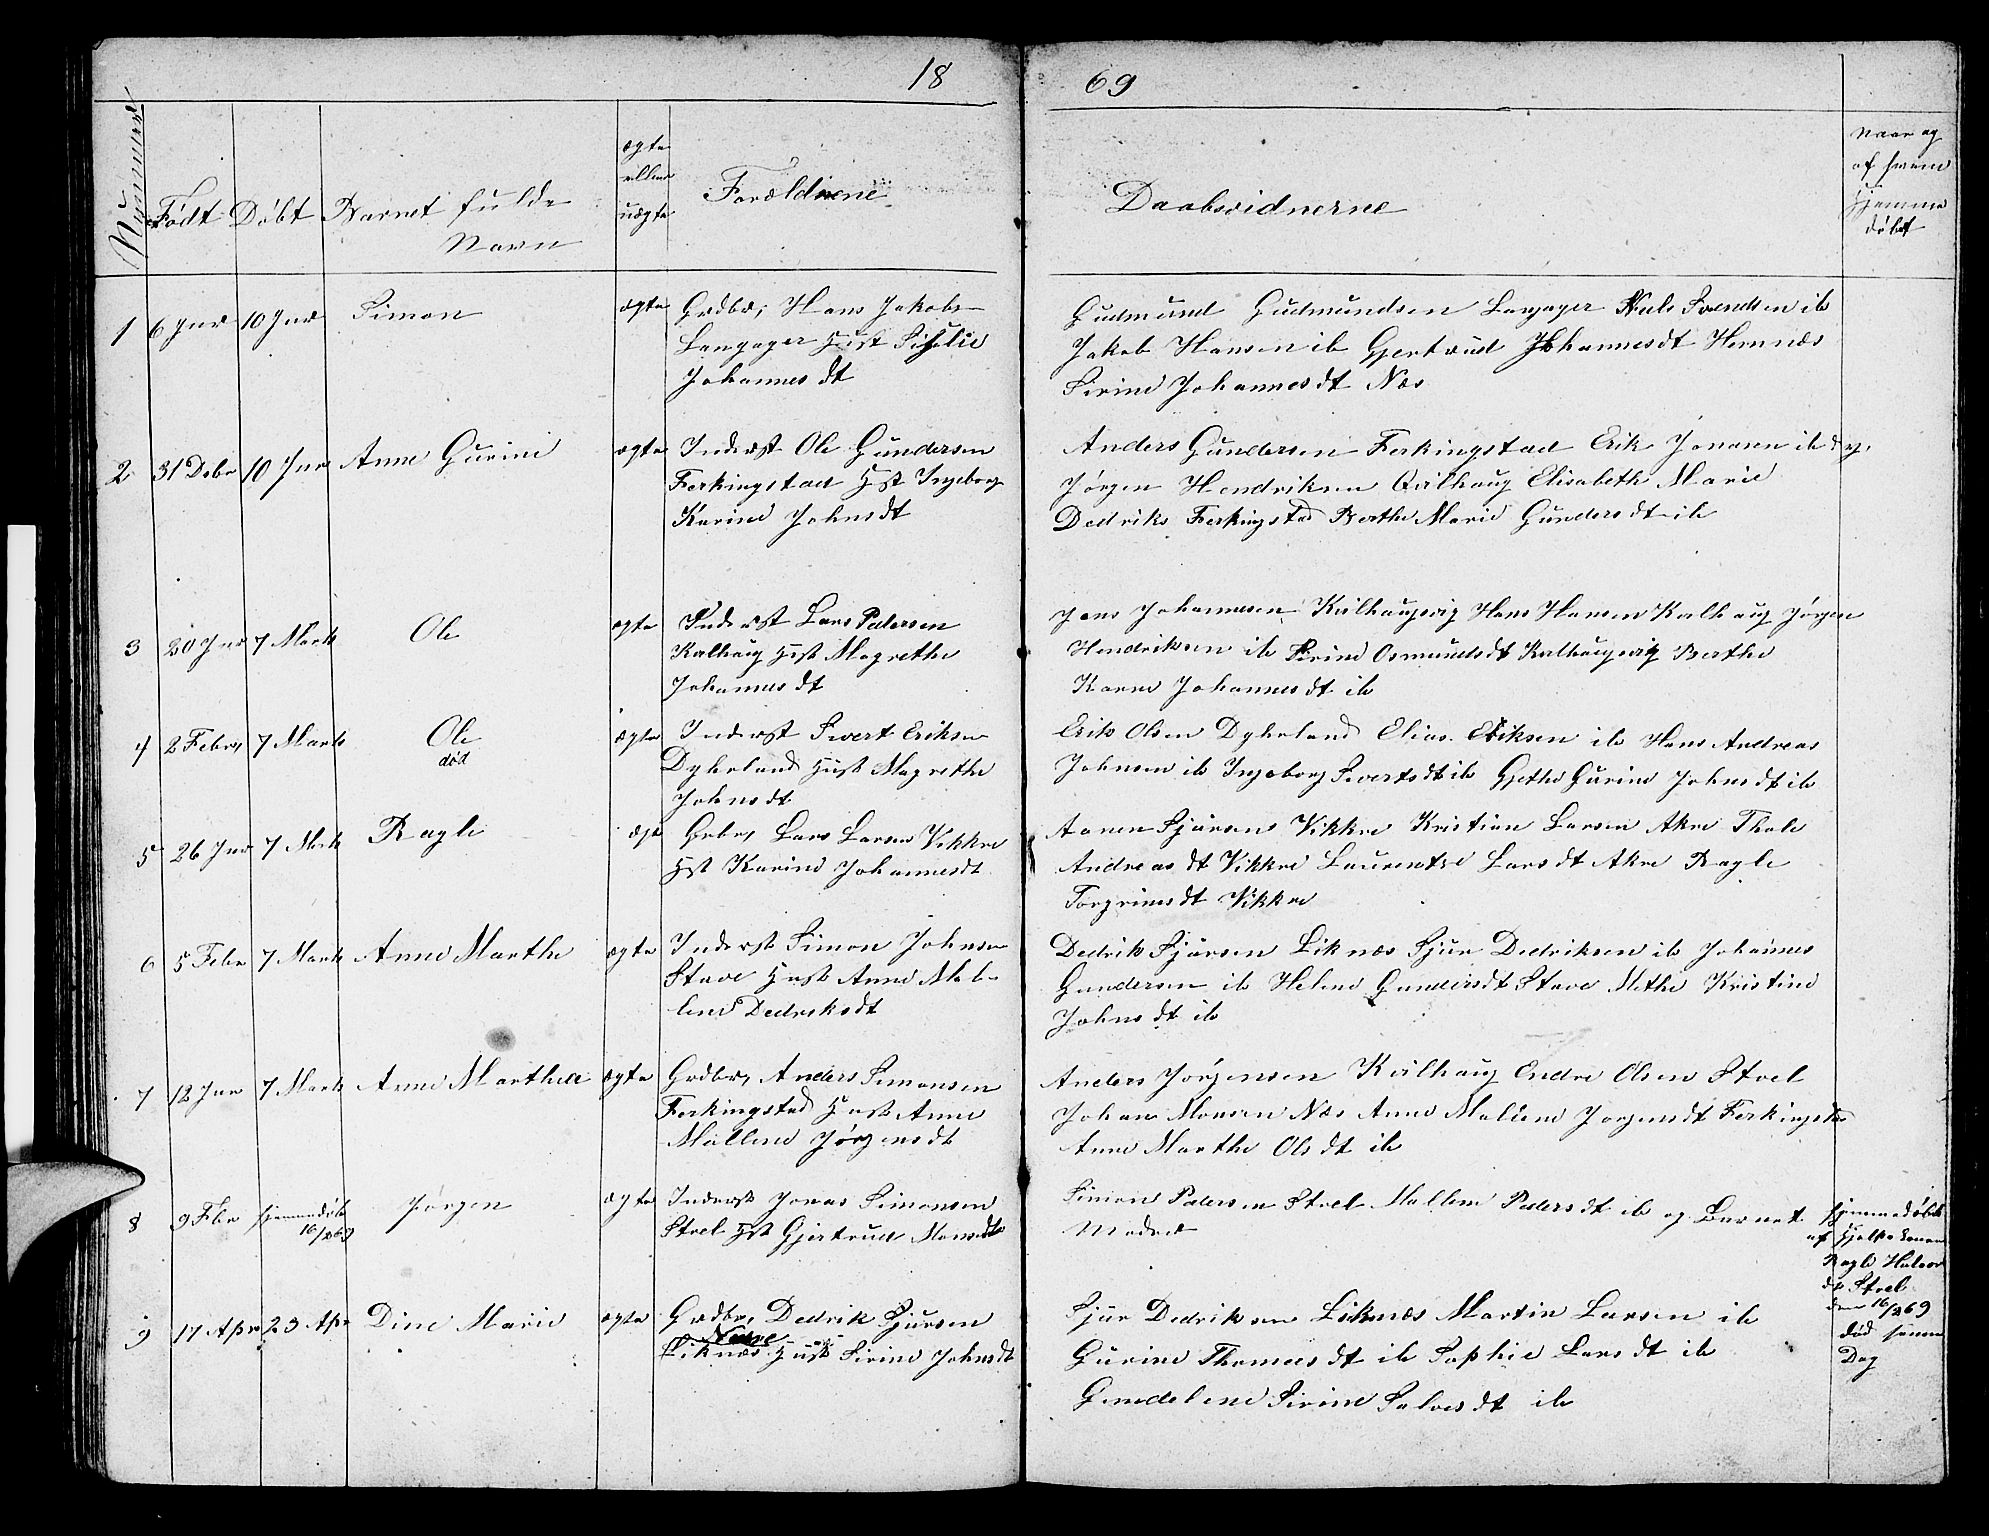 18 69
Nummer
Født Døbt Barnets fulde
Navn
ægte
eller
uægte
Forældrene
Daabsvidnerne
Naar og
af hvem
hjemme
døbt
1 6 Jnr 10 Jnr Simon ægte Grdbr, Hans Jakobs
Langager Hust
Johannesdt
Gudmund Gudmundsen Langager Niels Svendsen ib
Jakob Hansen ib Gjertrud Johannesdt Hemnæs
Sirine Johannesdt Næs
2 31 Debr 10 Jnr Anne Gurine ægte Inderst Ole Gundersen
Ferkingstad Hst Ingeborg
Karine Johnsdt
Anders Gundersen Ferkingstad Erik Jonasen ib og,
Jørgen Hendriksen Qvilhaug Elisabeth Marie
Dedriks Ferkingstad Berthe Marie Gundersdt ib
3 20 Jnr 7 Marts Ole ægte Inderst Lars Pedersen
Kvilhaug Hust Magrethe
Johannesdt
Jens Johannesen Kvilhaugsvig Hans Hansen Kvilhaug Jørgen
Hendriksen ib Sirine Osmundsdt Kvilhaugsvig Berthe
Karine Johannesdt ib
4 2 Febr, 7 Marts Ole ægte Inderst Sivert Eriksen
død
Dyheland Hust Magrethe
Johnsdt
Erik Olsen Dyheland Elias Eriksen ib Hans Andreas
Johnsen ib Ingeborg Sivertsdt ib Gjethe Gurine Johnsdt ib
5 26 Jnr 7 Mrts Ragle ægt Grbr, Lars Larsen Vikkre
Hst Karine Johannesdt
Aanen Sjursens Vikkre Kristian Larsen Akre Thale
Andreasdt Vikkre Laurentse Larsdt Akre Ragle
Torgrimsdt Vikkre
6 5 Febr 7 Marts Anne Marthe ægte Inderst Simon Johnsen
Stave Hust Anne Mal-
lene Dedriksdt
Dedrik Sjursen Liknæs Sjur Dedriksen ib Johannes
Gundersen ib Helene Gundersdt Stave Methe Kristine
Johnsdt ib
7 12 Jnr 7 Marts Anne Marthea ægte Grdbr, Anders Simonsen
Ferkingstad Hust Anne
Mallene Jørgensdt
Anders Jørgensen Kvilhaug Endre Olsen Stol
Johan Monsen Næs Anne Malene Jørgensdt Ferkingstad
Anne Marthe Olsdt ib
8 9 Fbr hjemmedøbt
16/2 69
Jørgen ægte Inderst Jonas Simonsen
Stol Hst Gjertrud Monsdt
Simon Pedersen Stol Mallene Pedersdt ib og Barnets
Moder
hjemmedøbt
af Hjelpe konen
Ragle Halvor
dt Stol
den 16/2 69
død samme
Dag
9 17 Apr 23 Apr Dine Marie ægte Grdbr, Dedrik Sjursen
Liknæs Hust Sirine Johnsdt
Sjur Dedriksen Liknæs Martin Larsen ib
Gurine Thomasdt ib Sophie Larsdt ib
Gundeline Sirine Salvesdt ib